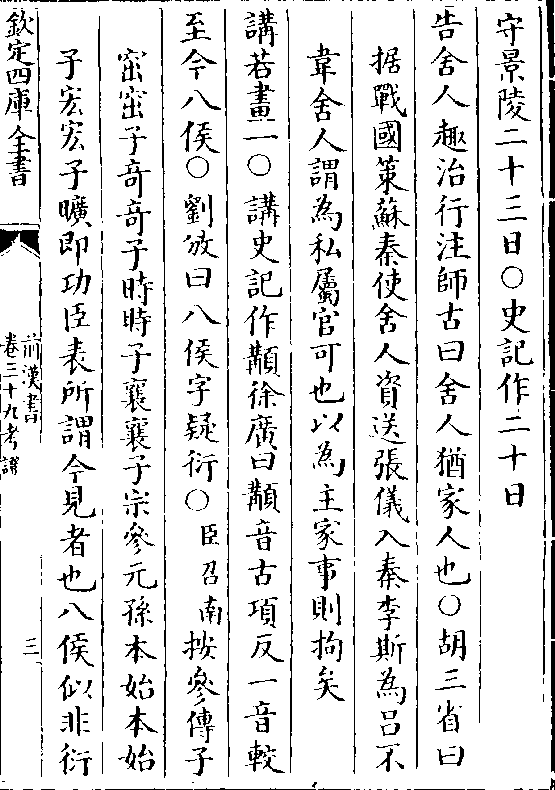 守景陵二十三日○史記作二十日
告舍人趣治行注師古曰舍人猶家人也○胡三省曰
据戰國策蘇秦使舍人資送張儀入秦李斯為呂不
韋舍人謂為私屬官可也以為主家事則拘矣
講若畫一○講史記作顜徐廣曰顜音古項反一音較
至今八侯○劉攽曰八侯字疑衍○臣召南按參傳子
窋窋子奇奇子時時子襄襄子宗參元孫本始本始
子宏宏子曠即功臣表所謂今見者也八侯似非衍
欽定四庫全書
前漢書
卷三十九考證
三